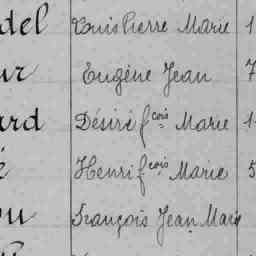 del Louis Pierre Marie 1
ur Eugène Jean 7
ard Désiré fcois Marie 1
é Henri fcois Marie 5
ou François Jean Marie